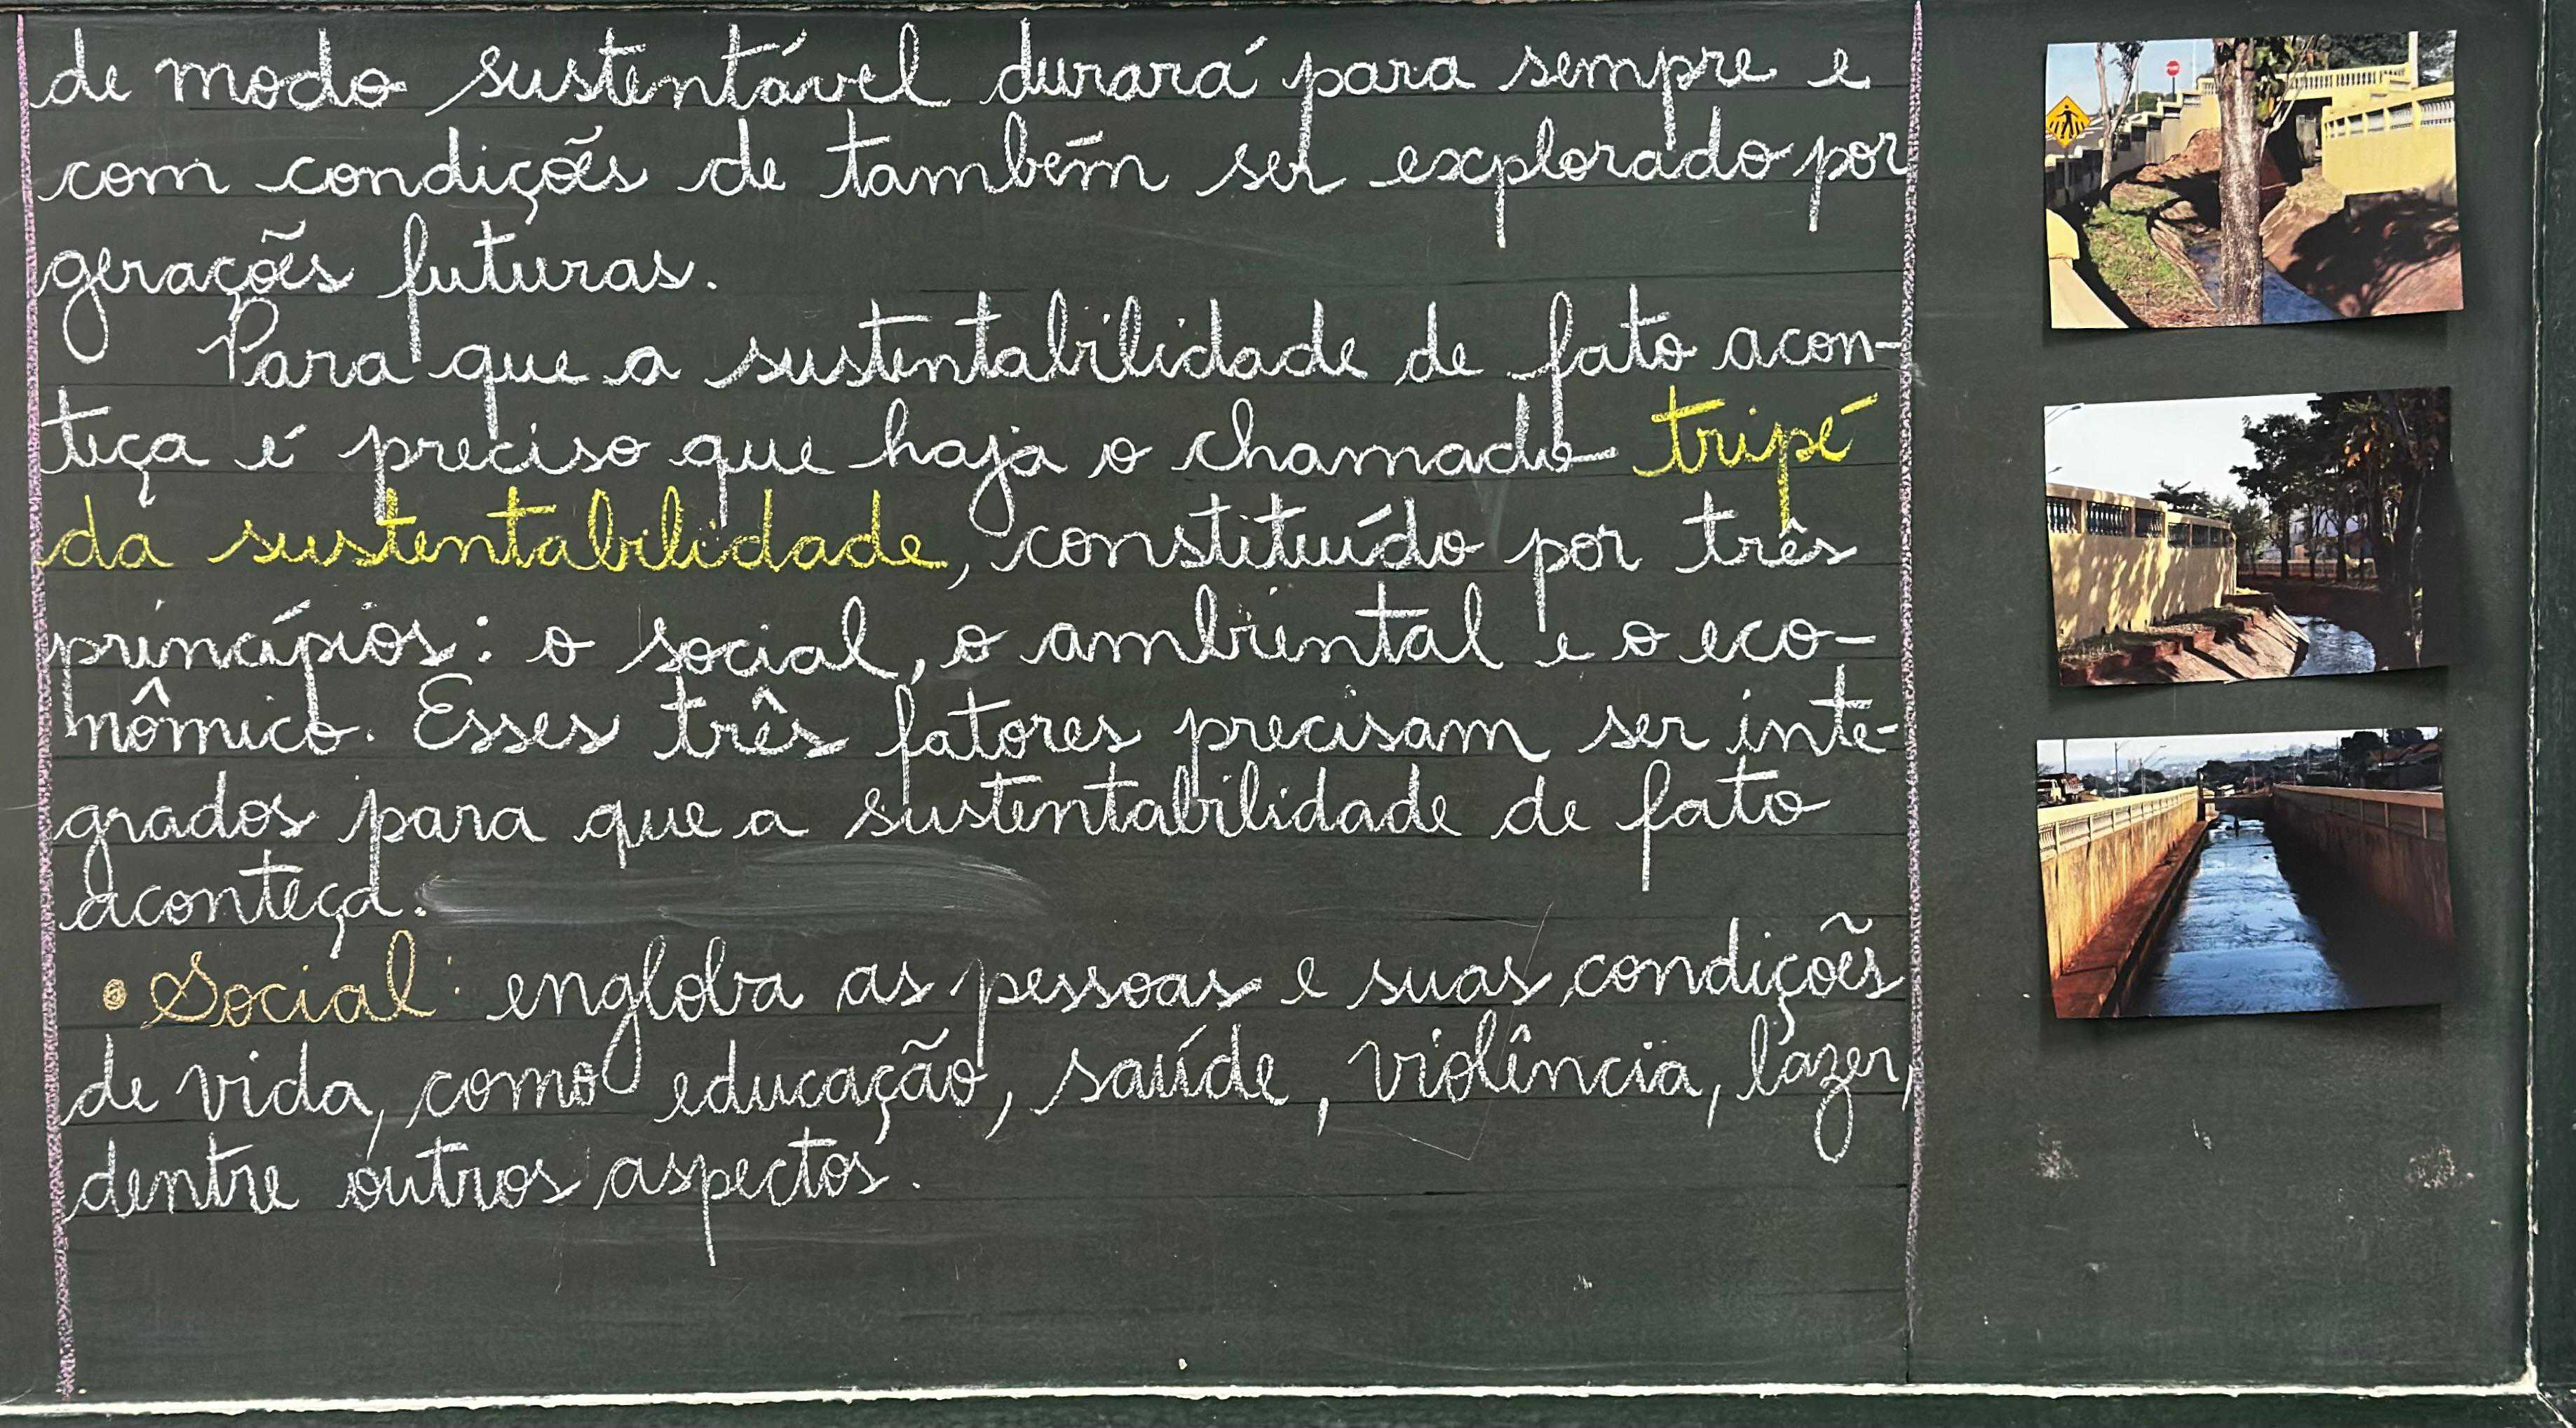 de modo sustentável durará para sempre e
com condições de também ser explorado por
gerações futuras.
Para que a sustentabilidade de fato acon-
teça é preciso que haja o chamado tripé
da sustentabilidade, constituído por três
princípios: o social, o ambiental e o eco-
nômico. Esses três fatores precisam ser inte-
grados para que a sustentabilidade de fato
aconteça.
• Social: engloba as pessoas e suas condições
de vida, como educação, saúde, violência, lazer,
dentre outros aspectos.